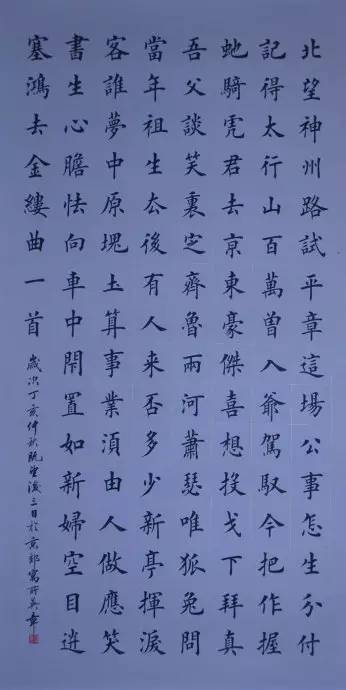 北望神州路試平章這場公事怎生分付
記得太行山百萬曽入爺駕馭今把作握
虵騎虎君去京東豪傑喜想投戈下拜真
吾父談笑裏定齊魯兩河蕭瑟唯狐兔問
當年祖生去後有人来否多少新亭揮淚
客誰夢中原塊土算事業須由人做應笑
書生心膽怯向車中閉置如新婦空目送
塞鴻去金縷曲一首
歲次丁亥仲秋既望後三日於京郊寓所